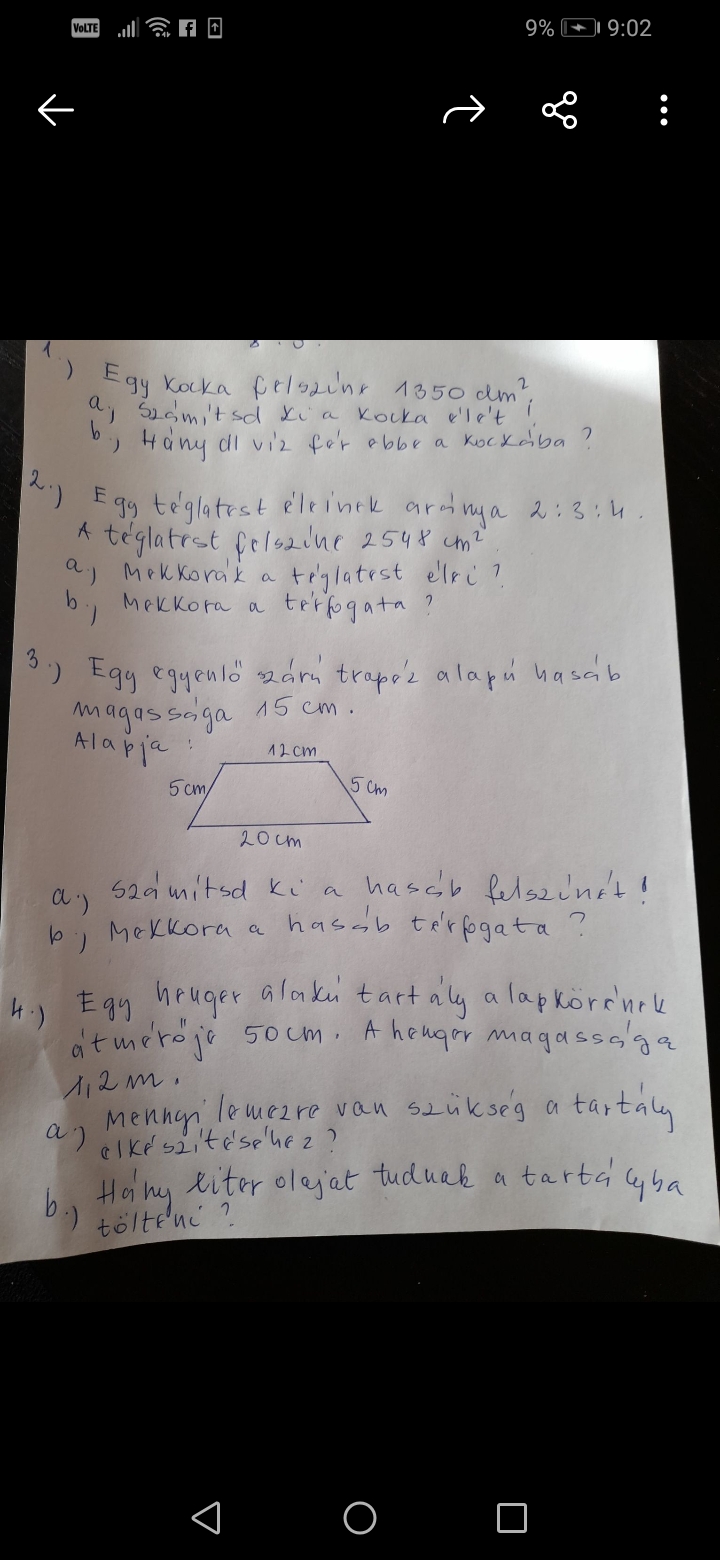 VoLTE 9% 9:02
1.) Egy kocka felszíne 1350 dm².
a.) Számítsd ki a kocka élét!
b.) Hány dl víz fér ebbe a kockába?
2.) Egy téglatest éleinek aránya 2:3:4.
A téglatest felszíne 2548 cm².
a.) Mekkorák a téglatest élei?
b.) Mekkora a térfogata?
3.) Egy egyenlő szárú trapéz alapú hasáb
magassága 15 cm.
Alapja:
12 cm
5 cm 5 cm
20 cm
a.) Számítsd ki a hasáb felszínét!
b.) Mekkora a hasáb térfogata?
4.) Egy henger alakú tartály alapkörének
átmérője 50 cm. A henger magassága
1,2 m.
a.) Mennyi lemezre van szükség a tartály
elkészítéséhez?
b.) Hány liter olajat tudunk a tartályba
tölteni?